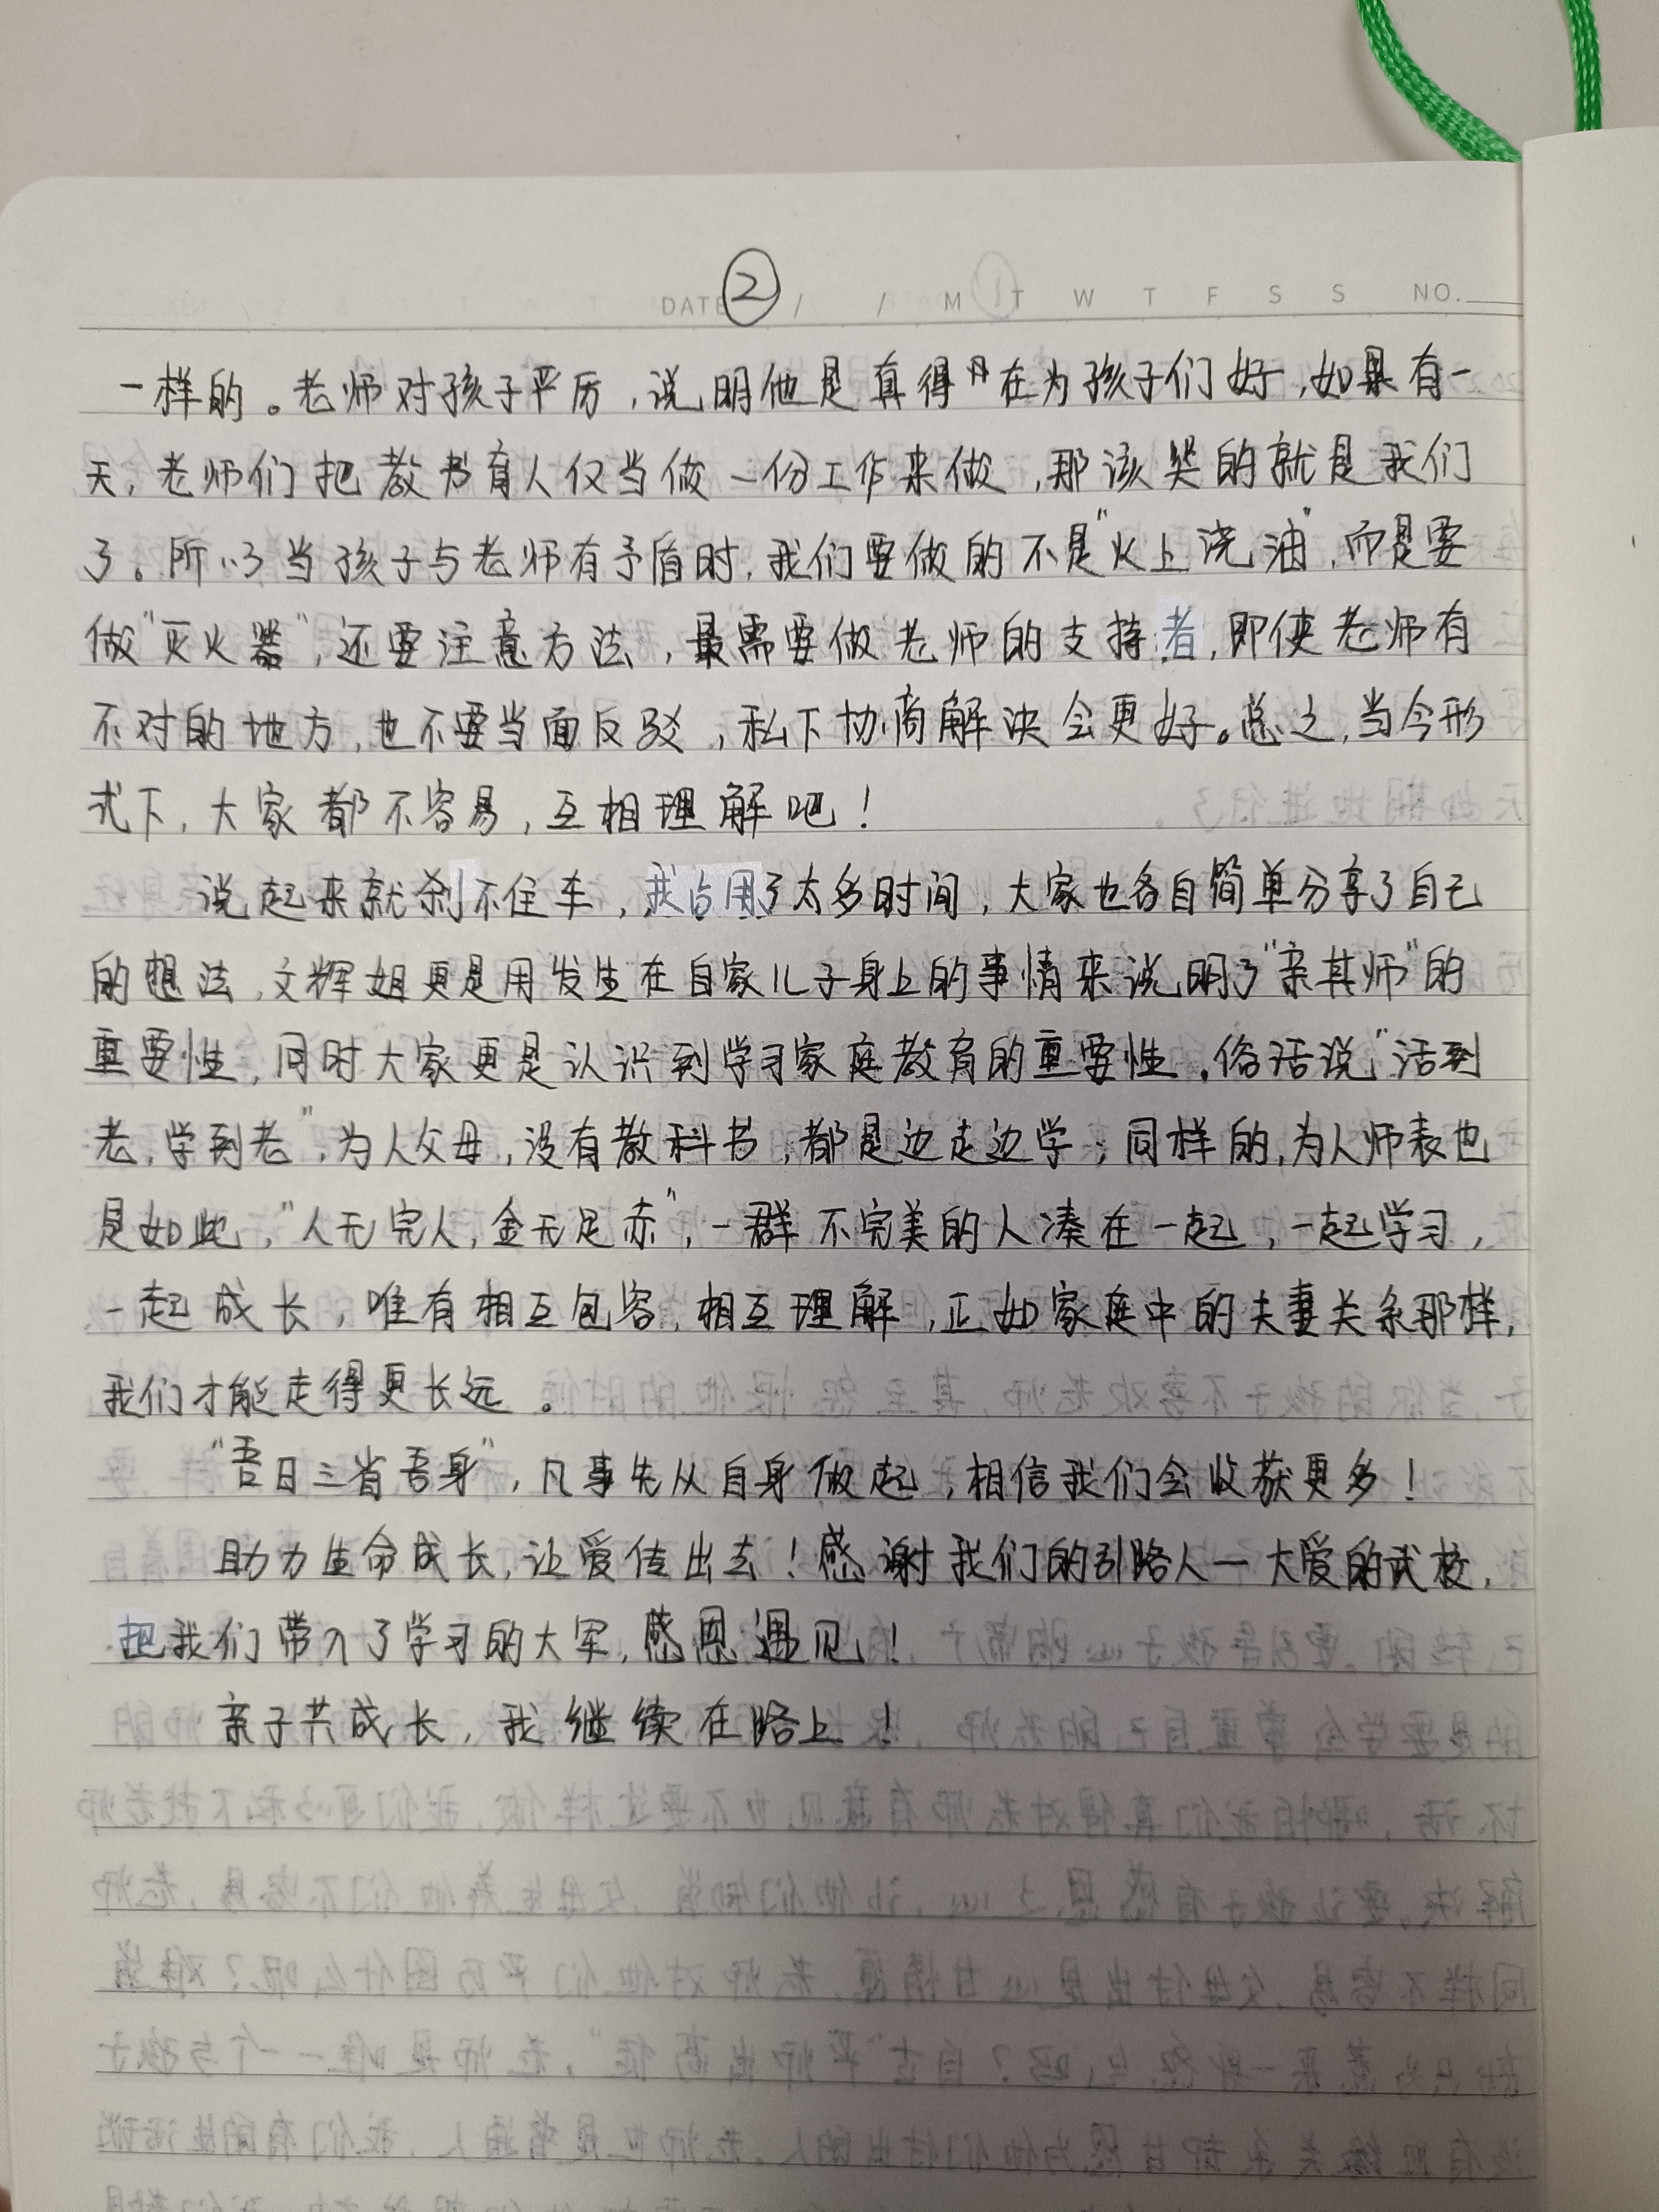 ②
DATE / / M T W T F S S NO.
一样的。老师对孩子严厉,说明他是真得的在为孩子们好,如果有一
天,老师们把教书育人仅当做一份工作来做,那该哭的就是我们
了。所以当孩子与老师有矛盾时,我们要做的不是“火上浇油”,而是要
做“灭火器”,还要注意方法,最需要做老师的支持者,即使老师有
不对的地方,也不要当面反驳,私下协商解决会更好。总之,当今形
式下,大家都不容易,互相理解吧!
说起来就刹不住车,我占用了太多时间,大家也各自简单分享了自己
的想法,文辉姐更是用发生在自家儿子身上的事情来说明了“亲其师”的
重要性,同时大家更是认识到学习家庭教育的重要性。俗话说“活到
老,学到老”,为人父母,没有教科书,都是边走边学;同样的,为人师表也
是如此,“人无完人,金无足赤”,一群不完美的人凑在一起,一起学习,
一起成长,唯有相互包容,相互理解,正如家庭中的夫妻关系那样,
我们才能走得更长远。
“吾日三省吾身”,凡事先从自身做起,相信我们会收获更多!
助力生命成长,让爱传出去!感谢我们的引路人一大爱的武校,
把我们带入了学习的大军,感恩遇见!
亲子共成长,我继续在路上!